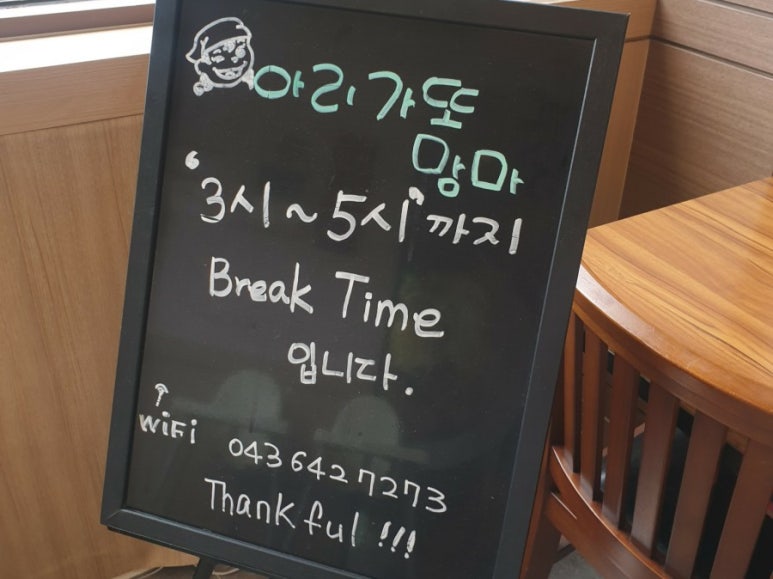 아리가또
맘마
"3시~5시"까지
Break Time
입니다.
WiFi 0436427273
Thankful !!!